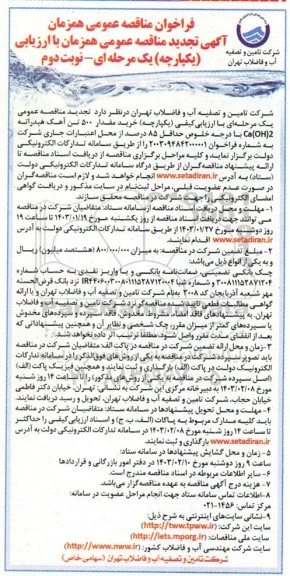 فراخوان مناقصه عمومی همزمان
آگهی تجدید مناقصه عمومی همزمان با ارزیابی
(یکپارچه) یک مرحله ای – نوبت دوم
شرکت تامین و تصفیه
آب و فاضلاب تهران
شرکت تامین و تصفیه آب و فاضلاب تهران درنظر دارد تجدید مناقصه عمومی
یک مرحله‌ای با ارزیابی کیفی (یکپارچه) خرید مقدار ۵۰۰ تن آهک هیدراته
Ca(OH)2 با درجه خلوص حداقل ۸۵ درصد از محل اعتبارات جاری شرکت
به شماره فراخوان ۲۰۰۳۰۹۴۸۴۲۰۰۰۰۰۱ را از طریق سامانه تدارکات الکترونیکی
دولت برگزار نماید و کلیه مراحل برگزاری مناقصه از دریافت اسناد مناقصه تا
ارائه پیشنهاد مناقصه‌گران از طریق درگاه سامانه تدارکات الکترونیکی دولت
(ستاد) به آدرس www.setadiran.ir انجام خواهد شد و لازم است مناقصه‌گران
در صورت عدم عضویت قبلی، مراحل ثبت‌نام در سایت مذکور و دریافت گواهی
امضای الکترونیکی را جهت شرکت در مناقصه محقق سازند.
۱- مهلت و محل دریافت اسناد مناقصه از سامانه ستاد: متقاضیان شرکت در مناقصه
می توانند جهت دریافت اسناد مناقصه از روز یکشنبه مورخ ۱۴۰۳/۰۱/۱۹ تا ساعت ۱۹
روز دوشنبه مورخ ۱۴۰۳/۰۱/۲۷ از طریق سامانه تدارکات الکترونیکی دولت به آدرس
www.setadiran.ir اقدام نمایند.
۲- مبلغ تضمین شرکت در مناقصه: به میزان ۸۰۰/۰۰۰/۰۰۰ (هشتصد میلیون) ریال
و به یکی از انواع ذیل می‌باشد:
چک بانکی تضمینی، ضمانت‌نامه بانکی و یا واریز نقدی به حساب شماره
نزد بانک قرض‌الحسنه
مهر شعبه آذربایجان کد ۳۰۰۸ بنام شرکت تامین و تصفیه آب و فاضلاب تهران و یا ارائه
گواهی مطالبات قطعی تایید شده مناقصه‌گر نزد شرکت تامین و تصفیه آب و فاضلاب
تهران. به پیشنهادهای فاقد امضاء، مشروط، مخدوش، فاقد سپرده و سپرده‌های مخدوش
یا سپرده‌های کمتر از میزان مقرر، چک شخصی و نظایر آن و همچنین پیشنهاداتی که
بعد از انقضای مدت مقرر واصل شود، مطلقا ترتیب اثر داده نخواهد شد.
۳- زمان و محل ارائه تضمین شرکت در مناقصه در پاکت الف: متقاضیان شرکت در مناقصه
باید تصویر سپرده شرکت در مناقصه به یکی از روش‌های فوق‌الذکر را در سامانه تدارکات
الکترونیک دولت در پاکت (الف) بارگذاری و ثبت نمایند و همچنین فیزیک پاکت (الف)
(اصل سپرده شرکت در مناقصه به یکی از روش‌های مذکور) را تا ساعت ۱۴ روز شنبه
مورخ ۱۴۰۳/۰۲/۰۸ به دبیرخانه مرکزی این شرکت به نشانی تهران، خیابان دکتر فاطمی
خیابان حجاب، شرکت تامین و تصفیه آب و فاضلاب تهران، تحویل و رسید دریافت نمایند.
۴- مهلت و محل تحویل پیشنهادها در سامانه ستاد: متقاضیان شرکت در مناقصه
باید کلیه مدارک مربوط به پاکات (الف، ب، ج) و اسناد ارزیابی کیفی را حداکثر
تا ساعت ۱۴ روز شنبه مورخ ۱۴۰۳/۰۲/۰۸ در سامانه تدارکات الکترونیکی دولت به آدرس
www.setadiran.ir بارگذاری و ثبت نمایند.
۵- زمان و محل گشایش پیشنهادها در سامانه ستاد:
ساعت ۹ روز دوشنبه مورخ ۱۴۰۳/۰۲/۱۰ در دفتر امور بازرگانی و قراردادها
۶- سایر اطلاعات مربوطه در اسناد مناقصه مندرج است.
۷- هزینه درج آگهی مناقصه به عهده مناقصه‌گزار می‌باشد.
۸- اطلاعات تماس سامانه ستاد جهت انجام مراحل عضویت در سامانه:
مرکز تماس: ۱۴۵۶-۰۲۱
۹- نشانی سایت‌های اینترنتی به شرح ذیل:
سایت این شرکت: (http://tww.tpww.ir)
سایت ملی مناقصات: (http://iets.mporg.ir)
سایت شرکت مهندسی آب و فاضلاب کشور: (http://www.nww.ir)
شرکت تامین و تصفیه آب و فاضلاب تهران (سهامی خاص)